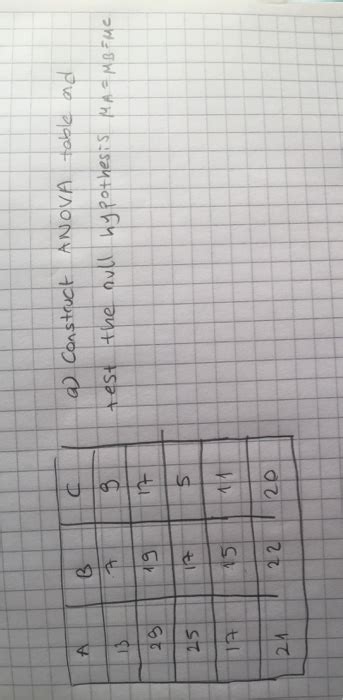 a) Construct ANOVA table and
test the null hypothesis MA = MB = MC
A B C
13 7 9
29 19 17
25 17 5
17 15 11
21 22 20